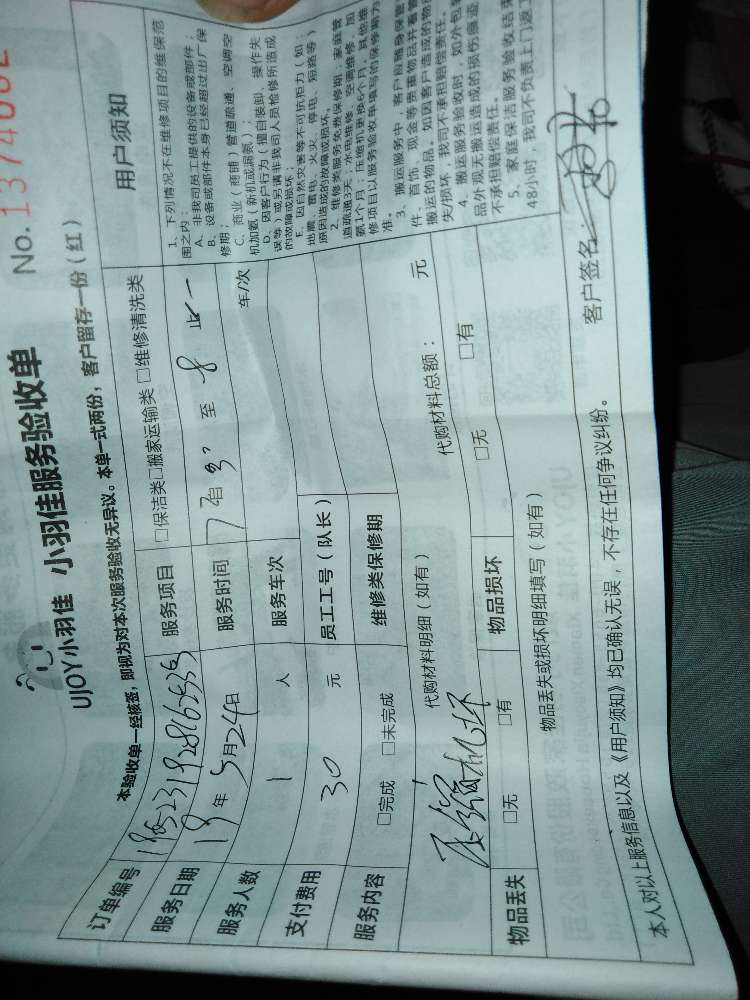 No. 1374602
UJOY小羽佳 小羽佳服务验收单
本验收单一经核签，即视为对本次服务验收无异议。本单一式两份，客户留存一份（红）
订单编号
服务项目 □保洁类□搬家运输类 □维修清洗类
服务日期 19 年 5月24日 服务时间 至 8 止
服务人数 1 人 服务车次 车/次
支付费用 30 元 员工工号（队长）
服务内容 □完成 □未完成 维修类保修期
代购材料明细（如有） 代购材料总额： 元
压缩机坏
物品丢失 □无 □有 物品损坏 □无 □有
物品丢失或损坏明细填写（如有）
本人对以上服务信息以及《用户须知》均已确认无误，不存在任何争议纠纷。
客户签名：
用户须知
1、下列情况不在维修项目的维保范
围之内：
A、非我司员工提供的设备或部件；
B、设备或部件本身已经超过出厂保
修期；
C、商业（商铺）管道疏通、空调空
机加氨（新机或漏氨）；
D、因客户行为（擅自装卸、操作失
误等）或另请非我司人员检修所造成
的故障或损坏；
E、因自然灾害等不可抗拒力（如：
地震、雷电、火灾、停电、短路等）
原因造成的故障或损坏。
2、维修类服务免费保修期，家庭管
道疏通3天；水电维修、空调维修、加
氨1个月；压缩机更换6个月。其他维
修项目以服务验收单填写的保修期为
准。
3、搬运服务中，客户应随身保管
件、首饰、现金等贵重物品并看管
搬运的物品。如因客户造成的物品
失/损坏，我司不承担赔偿责任。
4、搬运服务验收时，如外包装
品外观无搬运造成的损伤痕迹
不承担赔偿责任。
5、家庭保洁服务验收结束
48小时，我司不负责上门返工